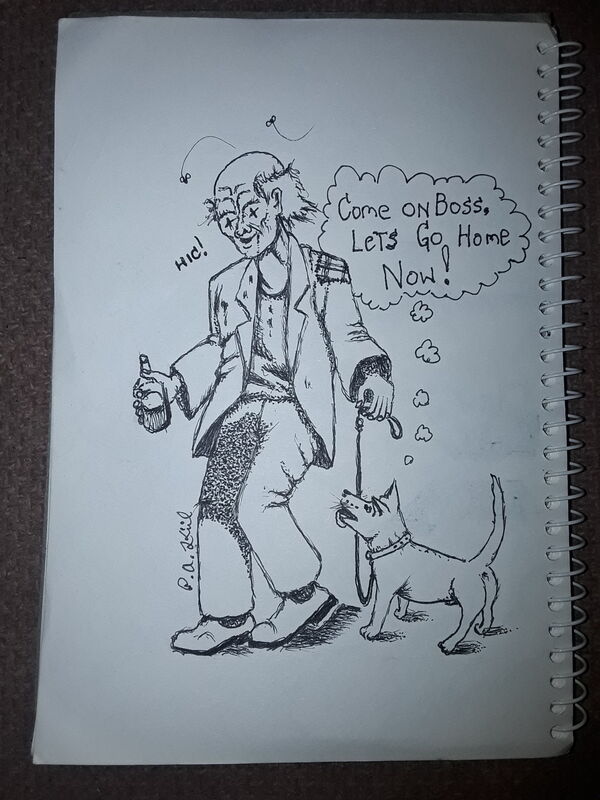 Come on Boss,
Lets Go Home
Now!
HIC!